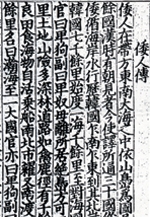 倭人傳
倭人在帶方東南大海之中依山島爲國
餘國漢時有朝見者今使譯所通三十國
倭循海岸水行歷韓國乍南乍東到其北岸
韓國七千餘里始度一海千餘里至對海
官曰卑狗副曰卑奴母離所居絶島方可
里土地山險多深林道路如禽鹿徑有千
良田食海物自活乖船南北市糴又南渡
餘里名曰瀚海至一大國官亦曰卑狗副